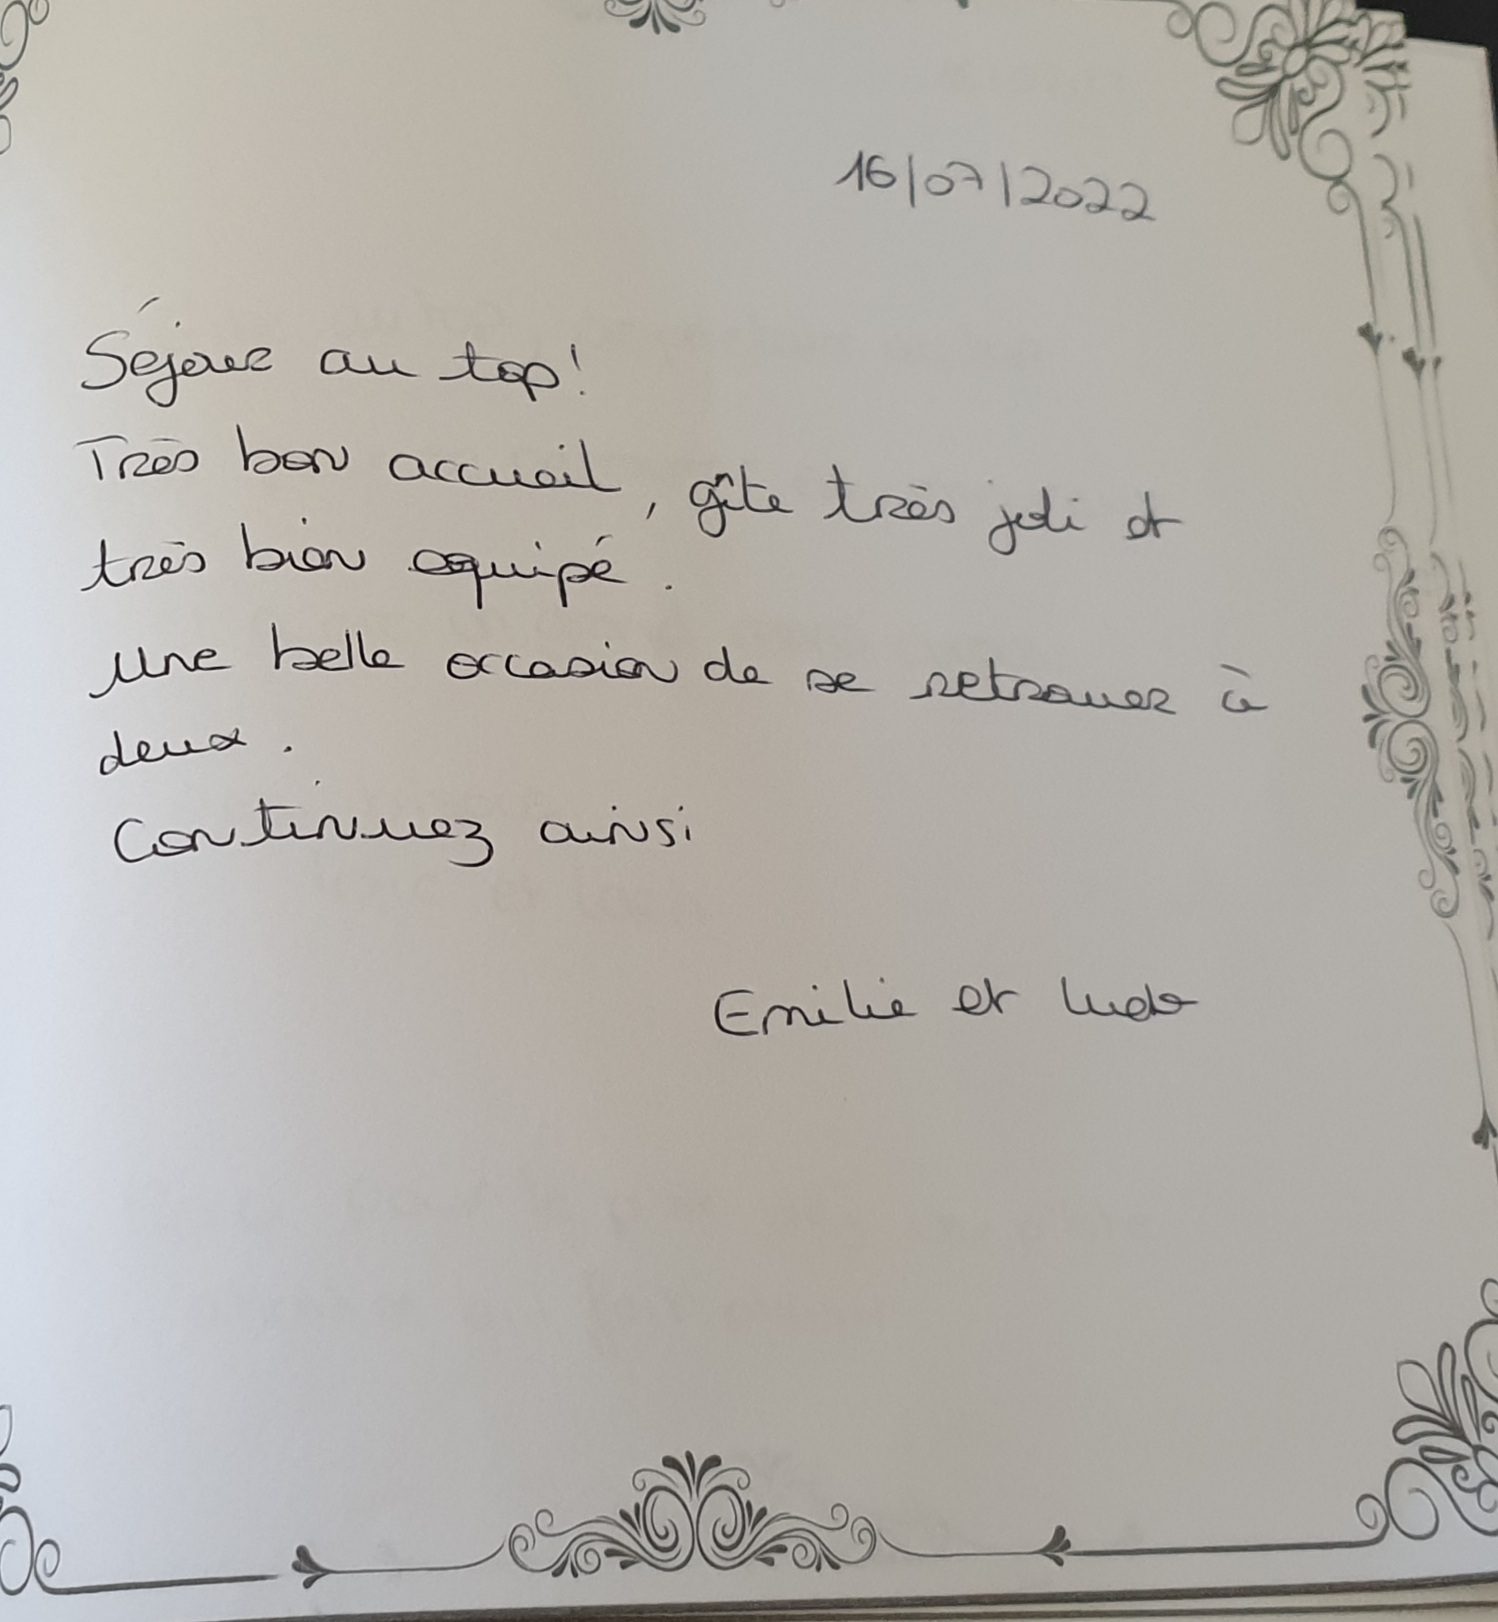 16/07/2022
Séjour au top!
Très bon accueil, gîte très joli et
très bien equipé.
une belle occasion de se retrouver à
deux.
Continuez ainsi
Emilie et Ludo